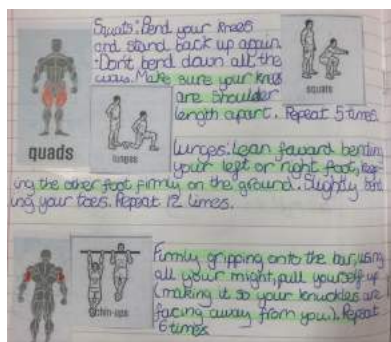 Squats: Bend your knees
and stand back up again.
• Don't bend down all the
way. Make sure your knees
are shoulder
length apart. Repeat 5 times
squats
quads
lunges
Lunges: Lean foward bending
your left or right foot,
ing the other foot firmly on the ground. Slightly
ing your toes. Repeat 12 times.
Firmly gripping onto the bar, using
all your might, pull yourself up
(making it so your knuckles are
facing away from you). Repeat
6 times
chin-ups